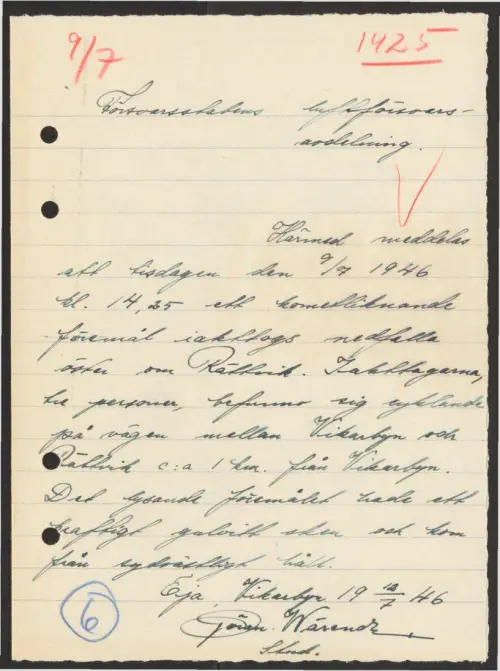 9/7
1425
Försvarsstabens luftförsvars-
avdelning.
Härmed meddelas
att tisdagen den 9/7 1946
kl. 14,25 ett kometliknande
föremål iakttogs nedfalla
öster om Rättvik. Iakttagarna,
tre personer, befunno sig cyklande
på vägen mellan Vikarbyn och
Rättvik c:a 1 km. från Vikarbyn.
Det lysande föremålet hade ett
kraftigt gulvitt sken och kom
från sydvästligt håll.
Vikarbyn 19 10/7 46
Göran Wärende
Stud.
6